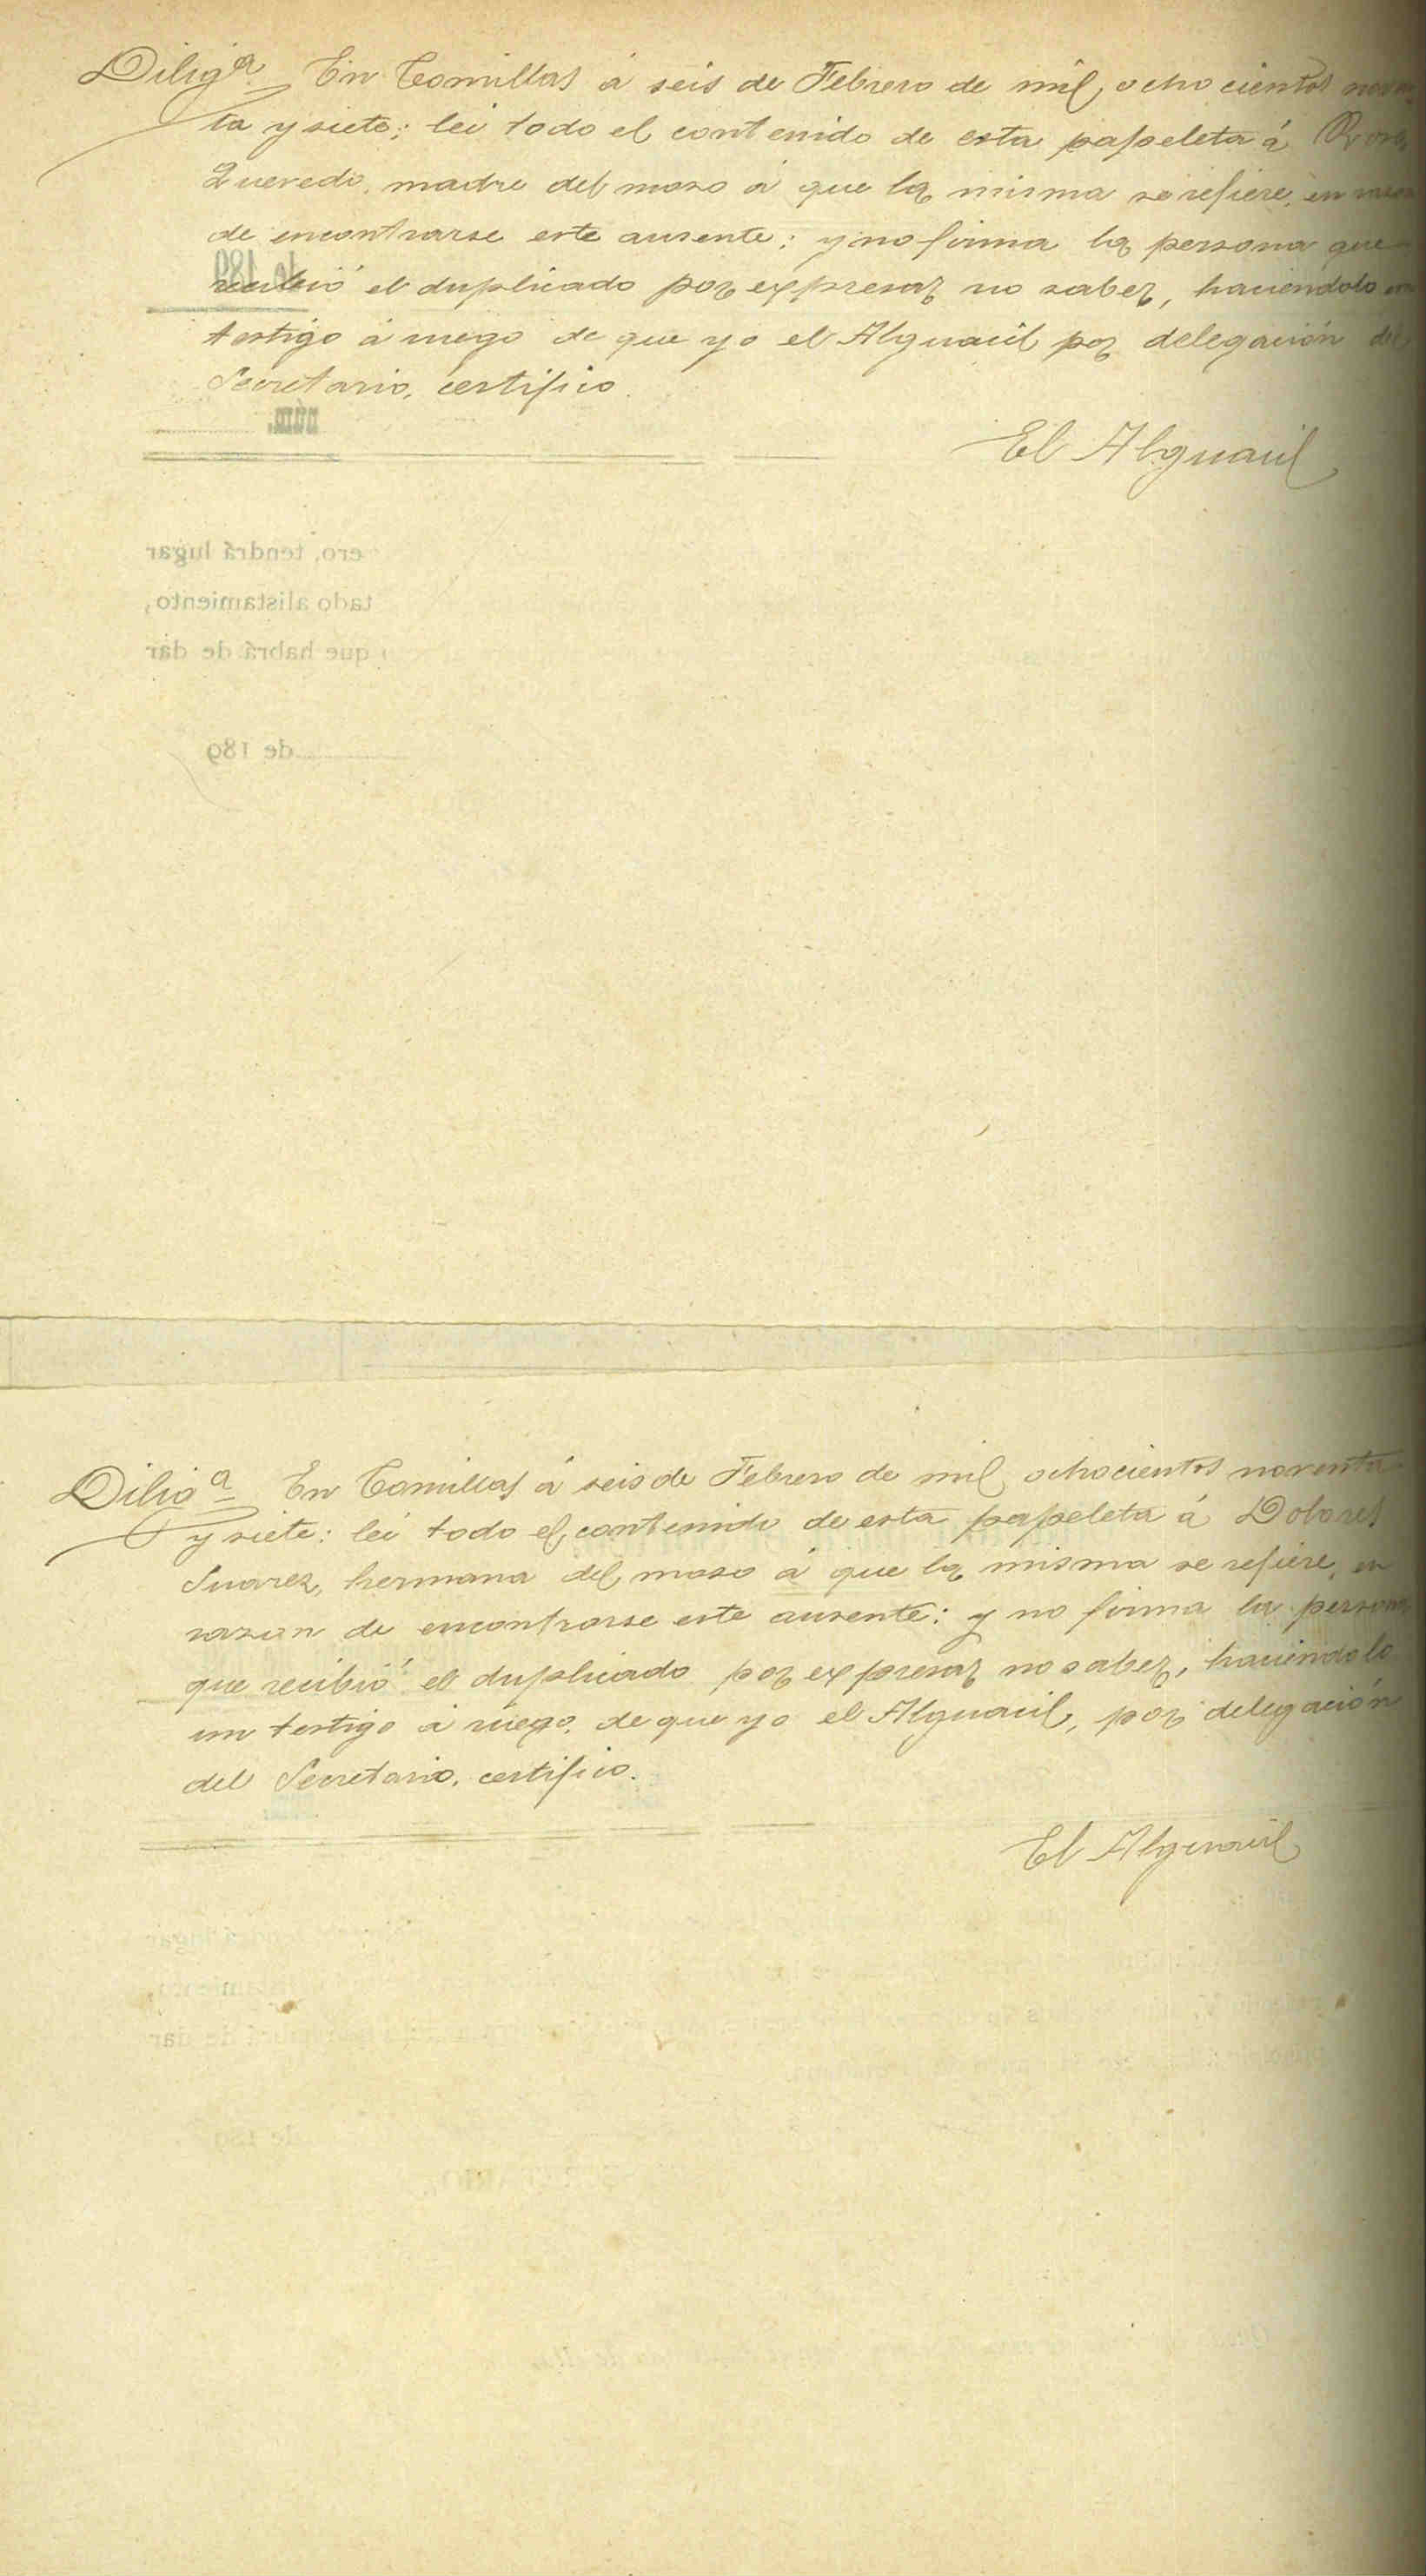 Diligª En Comillas á seis de Febrero de mil ochocientos noven
ta y siete; leí todo el contenido de esta papeleta á Rosa
Quevedo, madre del mozo á que la misma se refiere, en razon
de encontrarse este ausente; y no firma la persona que
recibió el duplicado por expresar no saber, haciendolo un
testigo á ruego de que yo el Alguacil por delegación del
Secretario, certifico.
núm.
El Alguacil
ero, tendrá lugar
tado alistamiento,
que habrá de dar
de 189
Diligª En Comillas á seis de Febrero de mil ochocientos noventa
y siete: leí todo el contenido de esta papeleta á Dolores
Suarez, hermana del mozo á que la misma se refiere, en
razon de encontrarse este ausente: y no firma la persona
que recibió el duplicado por expresar no saber, haciendolo
un testigo á ruego, de que yo el Alguacil, por delegación
del Secretario, certifico.
El Alguacil